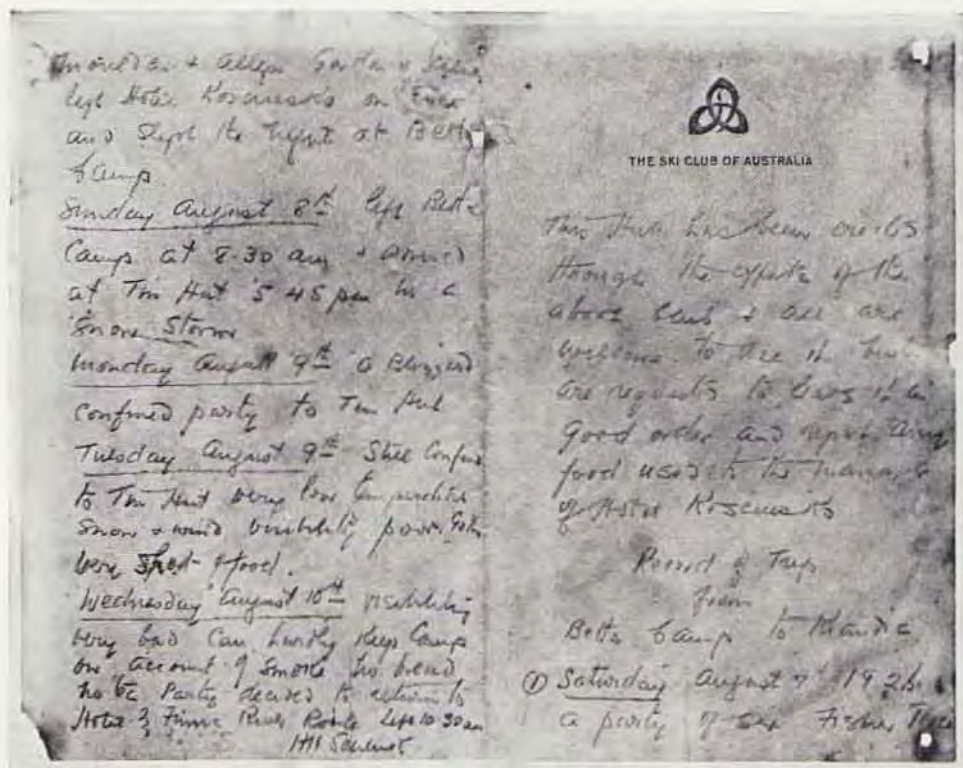 left Hotel Kosciusko on
and Slept the night at Betts
Camp.
Sunday August 8th left Betts
Camp at 8-30 am & arrived
at Tin Hut 5 45 pm in a
Snow Storm
Monday August 9th a Blizzard
confined party to Tin Hut
Tuesday August 9th Still Confined
to Tin Hut very low temperature
Snow & wind visibility poor
very short of food.
Wednesday August 10th visibility
very bad Can hardly keep Camp
on account of smoke no bread
no tea Party decided to return to
Hotel Finns River Route left 10 30 am
THE SKI CLUB OF AUSTRALIA
This Hut has been erected
through the efforts of the
above Club & all are
welcome to use it but
are requested to leave it in
good order and report any
food used to the manager
of Hotel Kosciusko
Record of Trip
from
Betts Camp to Kiandra
① Saturday August 7th 1926
a party of six Fisher